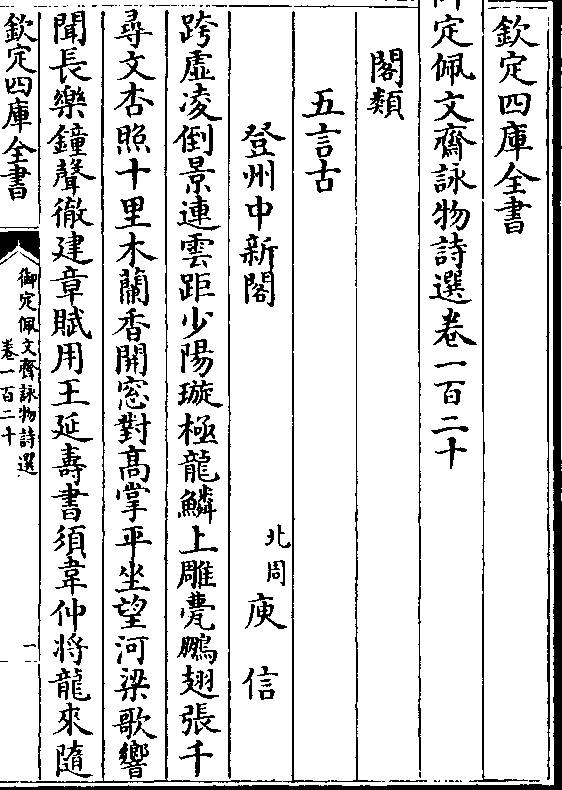 欽定四庫全書
御定佩文齋詠物詩選卷一百二十
閣類
五言古
登州中新閣
北周庾信
跨虛凌倒景連雲距少陽璇極龍鱗上雕甍鵬翅張千
尋文杏照十里木蘭香開窓對髙掌平坐望河梁歌響
聞長樂鐘聲徹建章賦用王延壽書須韋仲將龍來隨
欽定四庫全書
御定佩文齋詠物詩選
卷一百二十
一